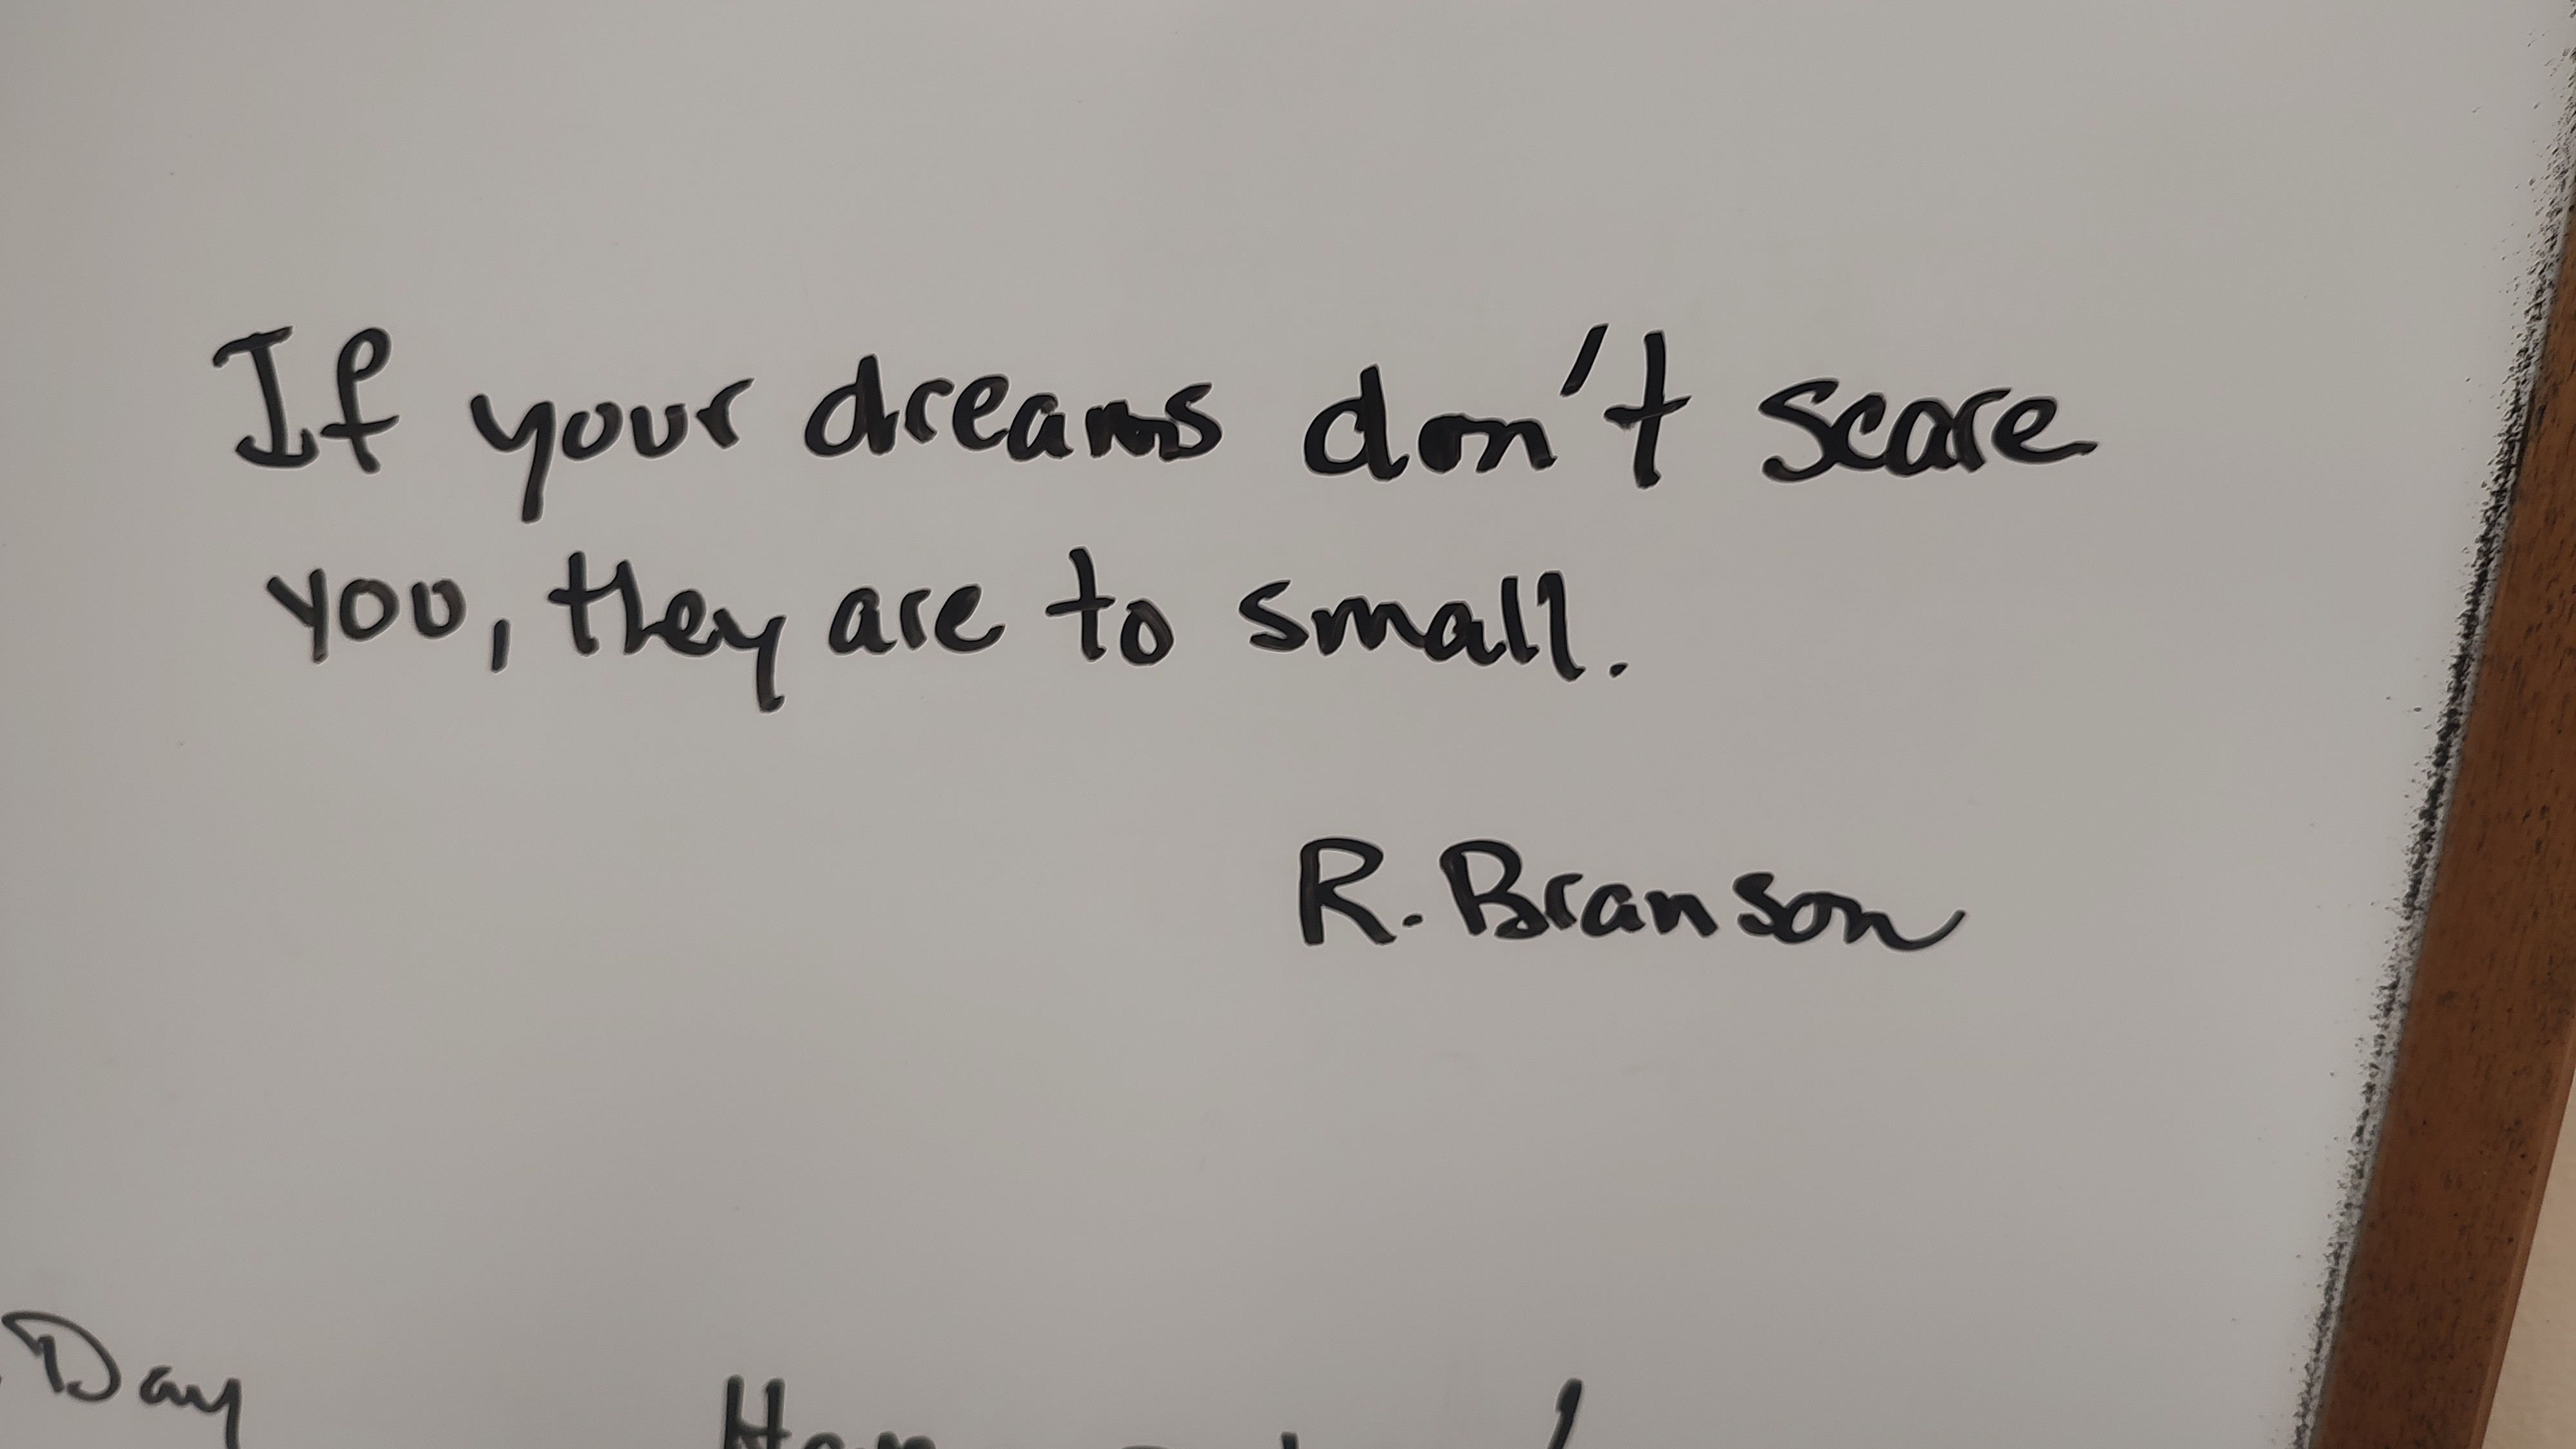 If your dreams don't scare
you, they are to small.
R. Branson
Day